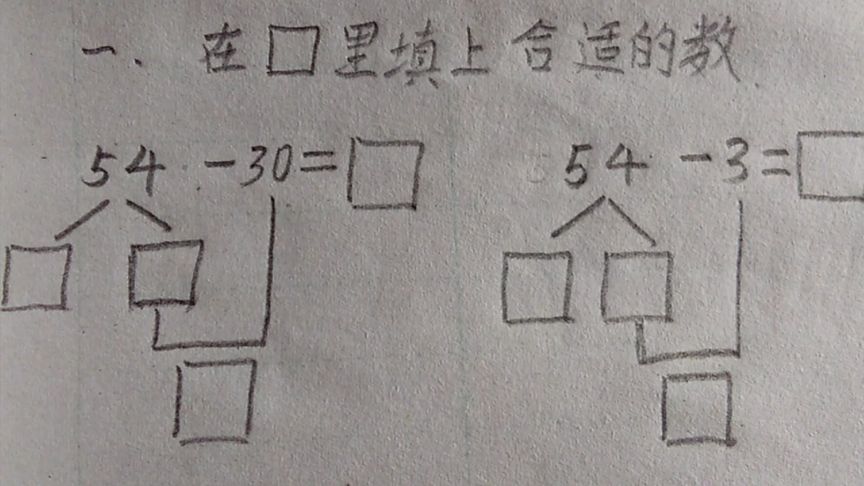 一、在□里填上合适的数
54-30=□ 54-3=□